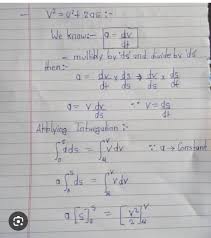 - V² = u² + 2as :-
We know:- a = dv/dt
- multiply by 'ds' and divide by 'ds'
then:-
a = dv/dt × ds/ds ⇒ dv/ds × ds/dt
a = v dv/ds ∵ v = ds/dt
Applying Integration:-
∫₀ˢ a ds = ∫ᵤⱽ v dv ∵ a → Constant
a ∫₀ˢ ds = ∫ᵤⱽ v dv
a [s]₀ˢ = [v²/2]ᵤⱽ